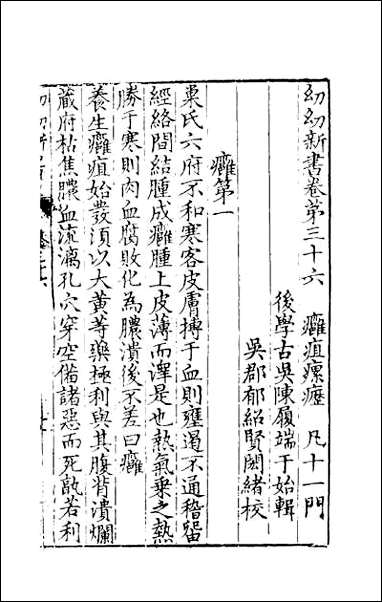 幼幼新書卷第三十六　癰疽瘰癧　凡十一門
後學古吳陳履端于始輯
吳郡郁紹賢閎緒校
癰第一
巢氏六府不和寒客皮膚搏于血則壅遏不通稽留
經絡間結腫成癰腫上皮薄而澤是也熱氣乘之熱
勝于寒則肉血腐敗化為膿潰後不差曰癰
養生癰疽始發須以大黃等藥極利與其腹背潰爛
藏府枯焦膿血流漓孔穴穿空備諸惡而死孰若利